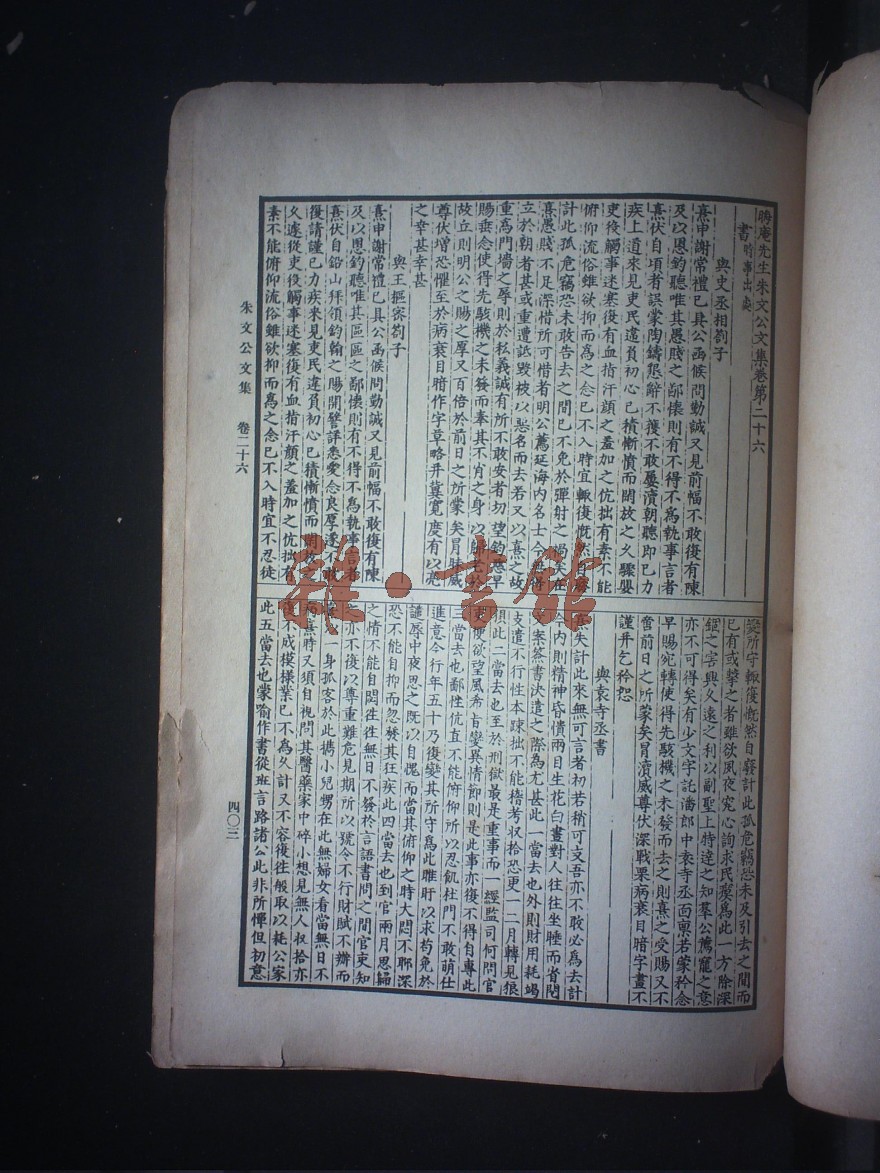 晦庵先生朱文公文集卷第二十六
書時事出處
與史丞相劄子
熹申謝常禮已具公函候問勤誠又見前幅不敢復有陳
及以恩鈞聽唯其愚賤之鄙懷則有不得不爲執事言者
熹伏自頃者誤蒙陶鑄懇辭不獲不敢屢瀆朝聽即已力
疾上道來見吏民違負初心已積慚憤而閒放之久驟嬰
吏役觸事迷塞復有血指汗顔之羞加之伉拙有素不能
俯仰流俗雖欲抑而爲之念已不入時宜輒復慨然自廢
計此孤危竊恐未敢告去之間已不免於彈射之禍矣在
熹愚賤不足深惜所可惜者明公薦延海内名士今無得
立於朝者甚或重遭詆毀被以惡名而去若又以熹之故
重爲門墻之辱則於私義誠有所不敢安者切望鈞慈早
賜垂念使得先駭機之未發而奉其不肖之身以歸老於
故丘則明公之賜之厚又百倍於前日之所蒙矣冒昧威
尊伏增恐懼至於病衰目暗作字草略并冀寬度有以亮
之幸甚幸甚
與王樞密劄子
熹申謝常禮已具公函候問勤誠又見前幅不敢復有陳
及以恩鈞聽唯其區區之鄙懷則有不得不爲執事言者
熹伏自鉛山拜領鈞翰之賜開譬詳悉愛念良厚遂不敢
復請謹已力疾來見吏民違負初心已積慚憤而閒放之
久遽從吏役觸事迷塞復有血指汗顔之羞加之伉拙有
素不能俯仰流俗雖欲抑而爲之念已不入時宜不忍徒
變所守輒復慨然自廢計此孤危竊恐未及引去之間而
已有或擊之者雖欲夙夜究心詢求民瘼爲此一方除深
錮之害興久遠之利以副聖上特達之知羣公薦寵之意
亦不可得矣有少文字託潘郎中袁寺丞面稟若蒙矜念
早賜宛轉使得先駭機之未發而去之則熹之受賜又不
啻前日之所蒙矣冒瀆威尊伏深戰栗病衰目暗字畫不
謹并乞矜恕
與袁寺丞書
熹失計此來無可言者初若稍可支吾亦不敢必爲去計
今内則精神昏憒兩目生花白晝對人往往坐睡而省閱
文案簽書決遣之際爲尤甚此一當去也外則財用耗竭
支遣不行性本疎拙不能稽考収拾恐更一二月轉見狼
狽此二當去也至於刑獄最是重事而一經監司何問官
吏便欲望風希旨變異情節則是此事亦復不得自專此
三當去也鄙性伉直不能俯仰所以忍飢杜門不敢萌仕
進意今行年五十乃復變其所守爲此睢盱以求苟免於
譴辱中夜思之旣以自愧而當其俯仰之時大悶不聊深
恐不能自抑而忽發其狂疾此四當去也到官兩月思歸
之情不能自閼徃徃無日不發於言語書問之間官吏知
之亦不復以尊重難危見期所以號令不行財賦不辦而
熹以一身孤客於此携小兒甥在此無婦女看當無日不
病熹時又須自視問其醫藥家中碎小想見無人収拾亦
復不成模樣業已不為久計又不容復徃般取以耗公家
此五當去也蒙喻作書從班言路諸公此非所憚但初意
朱文公文集 卷二十六
四〇三
雜·書館